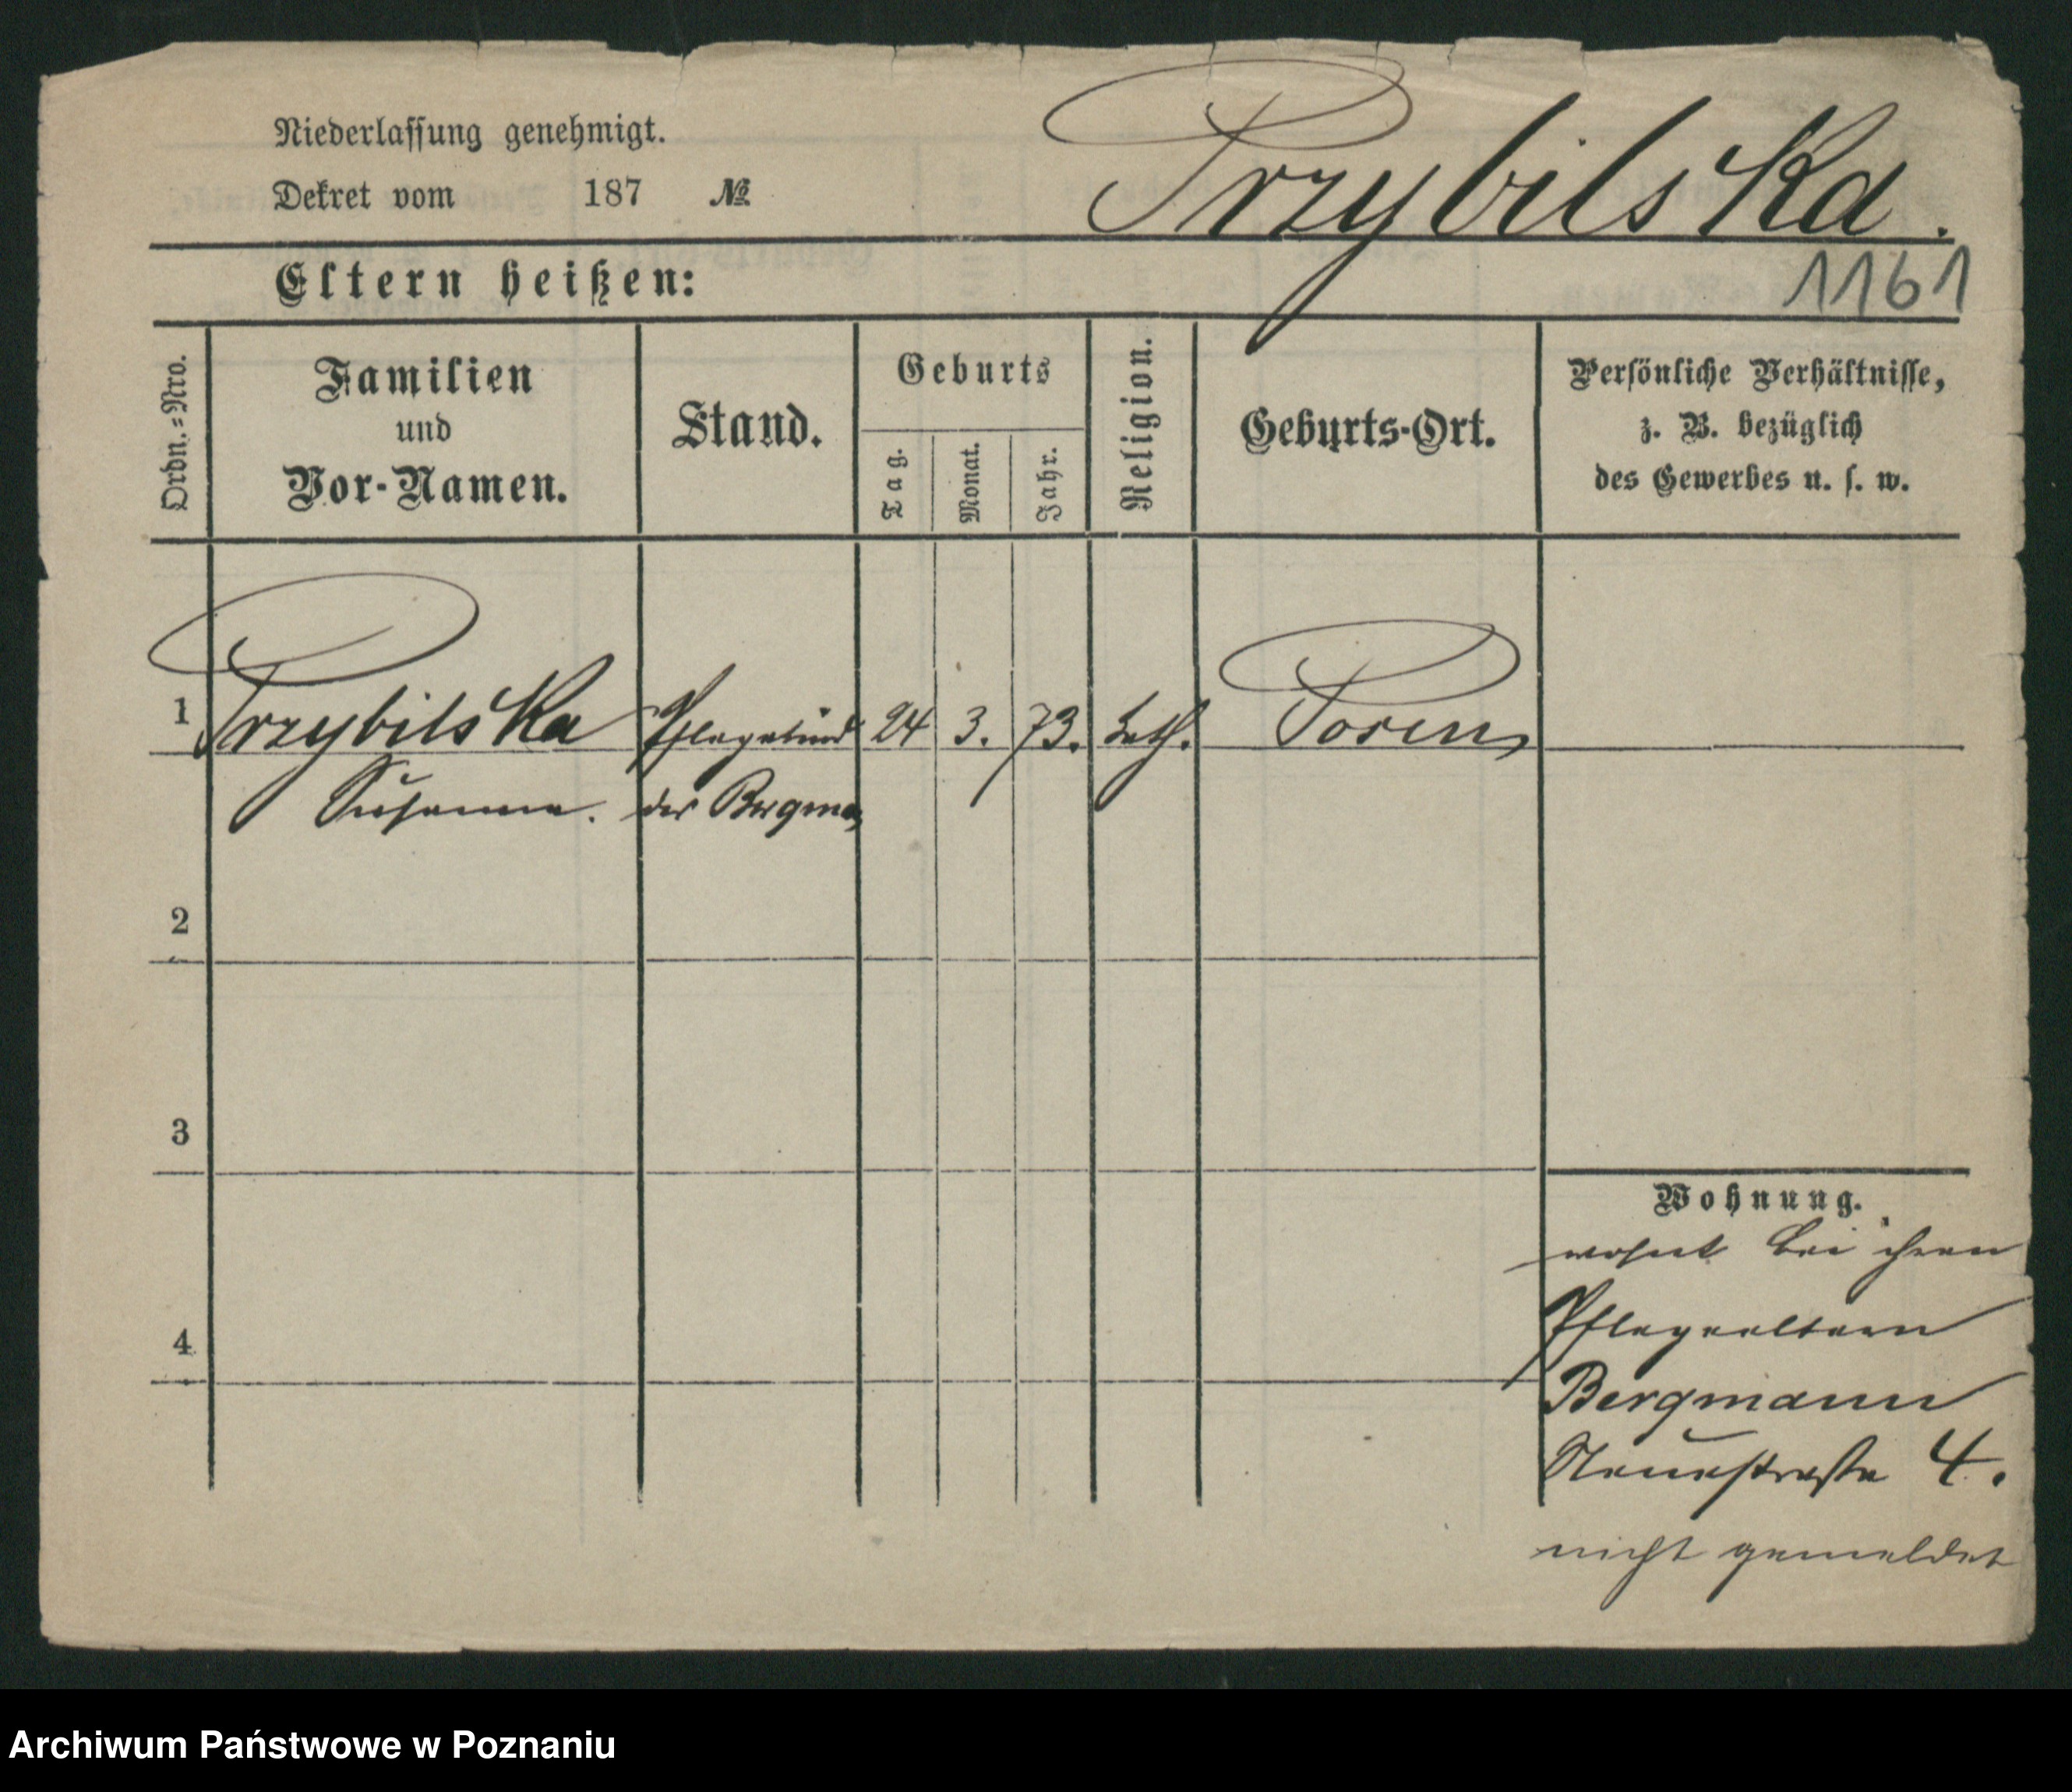 Niederlassung genehmigt.
Dekret vom 187 №
Przybilska.
1161
Eltern heißen:
Ordn.=Nro.
Familien
und
Vor-Namen.
Stand.
Geburts
Tag.
Monat.
Jahr.
Religion.
Geburts-Ort.
Persönliche Verhältnisse,
z. B. bezüglich
des Gewerbes u. s. w.
1 Przybilska Pflegekind 24 3. 73. kath. Posen
Susanna. der Bergma
2
3
4
Wohnung.
wohnt bei ihren
Pflegeeltern
Bergmann
Neuestraße 4.
nicht gemeldet
Archiwum Państwowe w Poznaniu